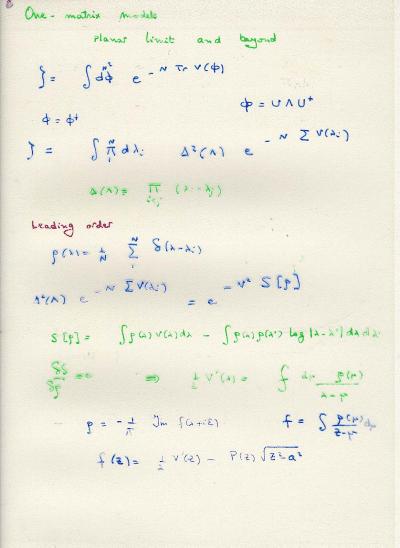 One-matrix models
Planar limit and beyond
ζ = ∫ d^{N²}ϕ e^{-N Tr V(ϕ)}
ϕ = U Λ U⁺
ϕ = ϕ⁺
ζ = ∫ ∏₁ᴺ dλᵢ Δ²(Λ) e^{-N Σ V(λᵢ)}
Δ(Λ) = ∏_{i<j} (λᵢ - λⱼ)
Leading order
ρ(λ) = 1/N Σᵢᴺ δ(λ-λᵢ)
Δ²(Λ) e^{-N Σ V(λᵢ)} = e^{-N² S[ρ]}
S[ρ] = ∫ρ(λ)V(λ)dλ - ∫ρ(λ)ρ(λ') log|λ-λ'| dλ dλ'
δS/δρ = 0 ⇒ ½ V'(λ) = ⨍ dμ ρ(μ)/(λ-μ)
ρ = -1/π Im f(λ+iε) f = ∫ ρ(μ)/(z-μ) dμ
f(z) = ½ V'(z) - P(z) √(z²-a²)